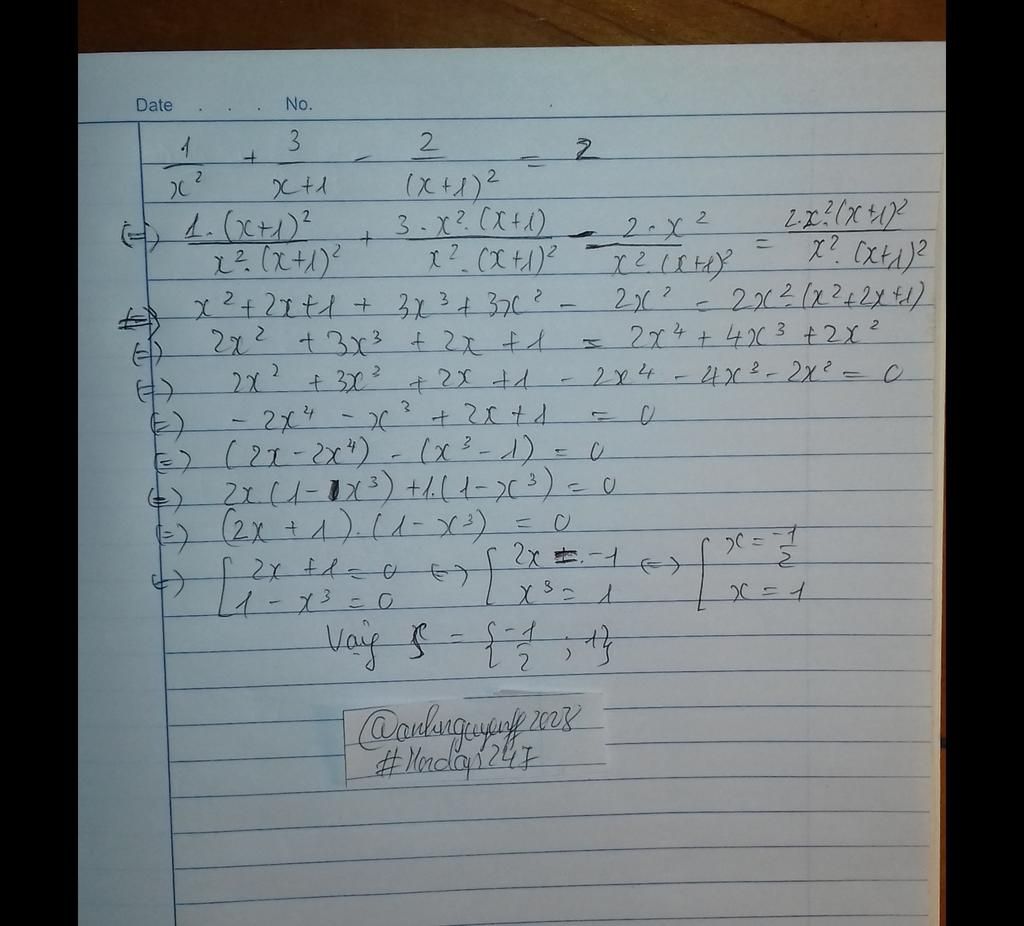 Date . . . No.
1/x² + 3/(x+1) - 2/(x+1)² = 2
(=) 1.(x+1)²/x².(x+1)² + 3.x².(x+1)/x².(x+1)² - 2.x²/x².(x+1)² = 2.x².(x+1)²/x².(x+1)²
x² + 2x + 1 + 3x³ + 3x² - 2x² = 2x².(x²+2x+1)
(=) 2x² + 3x³ + 2x + 1 = 2x⁴ + 4x³ + 2x²
(=) 2x² + 3x³ + 2x + 1 - 2x⁴ - 4x³ - 2x² = 0
(=) - 2x⁴ - x³ + 2x + 1 = 0
(=) (2x - 2x⁴) - (x³ - 1) = 0
(=) 2x(1 - x³) + 1.(1 - x³) = 0
(=) (2x + 1).(1 - x³) = 0
(=) [ 2x + 1 = 0 (=) [ 2x = -1 (=) [ x = -1/2
1 - x³ = 0 x³ = 1 x = 1
Vậy S = {-1/2 ; 1}